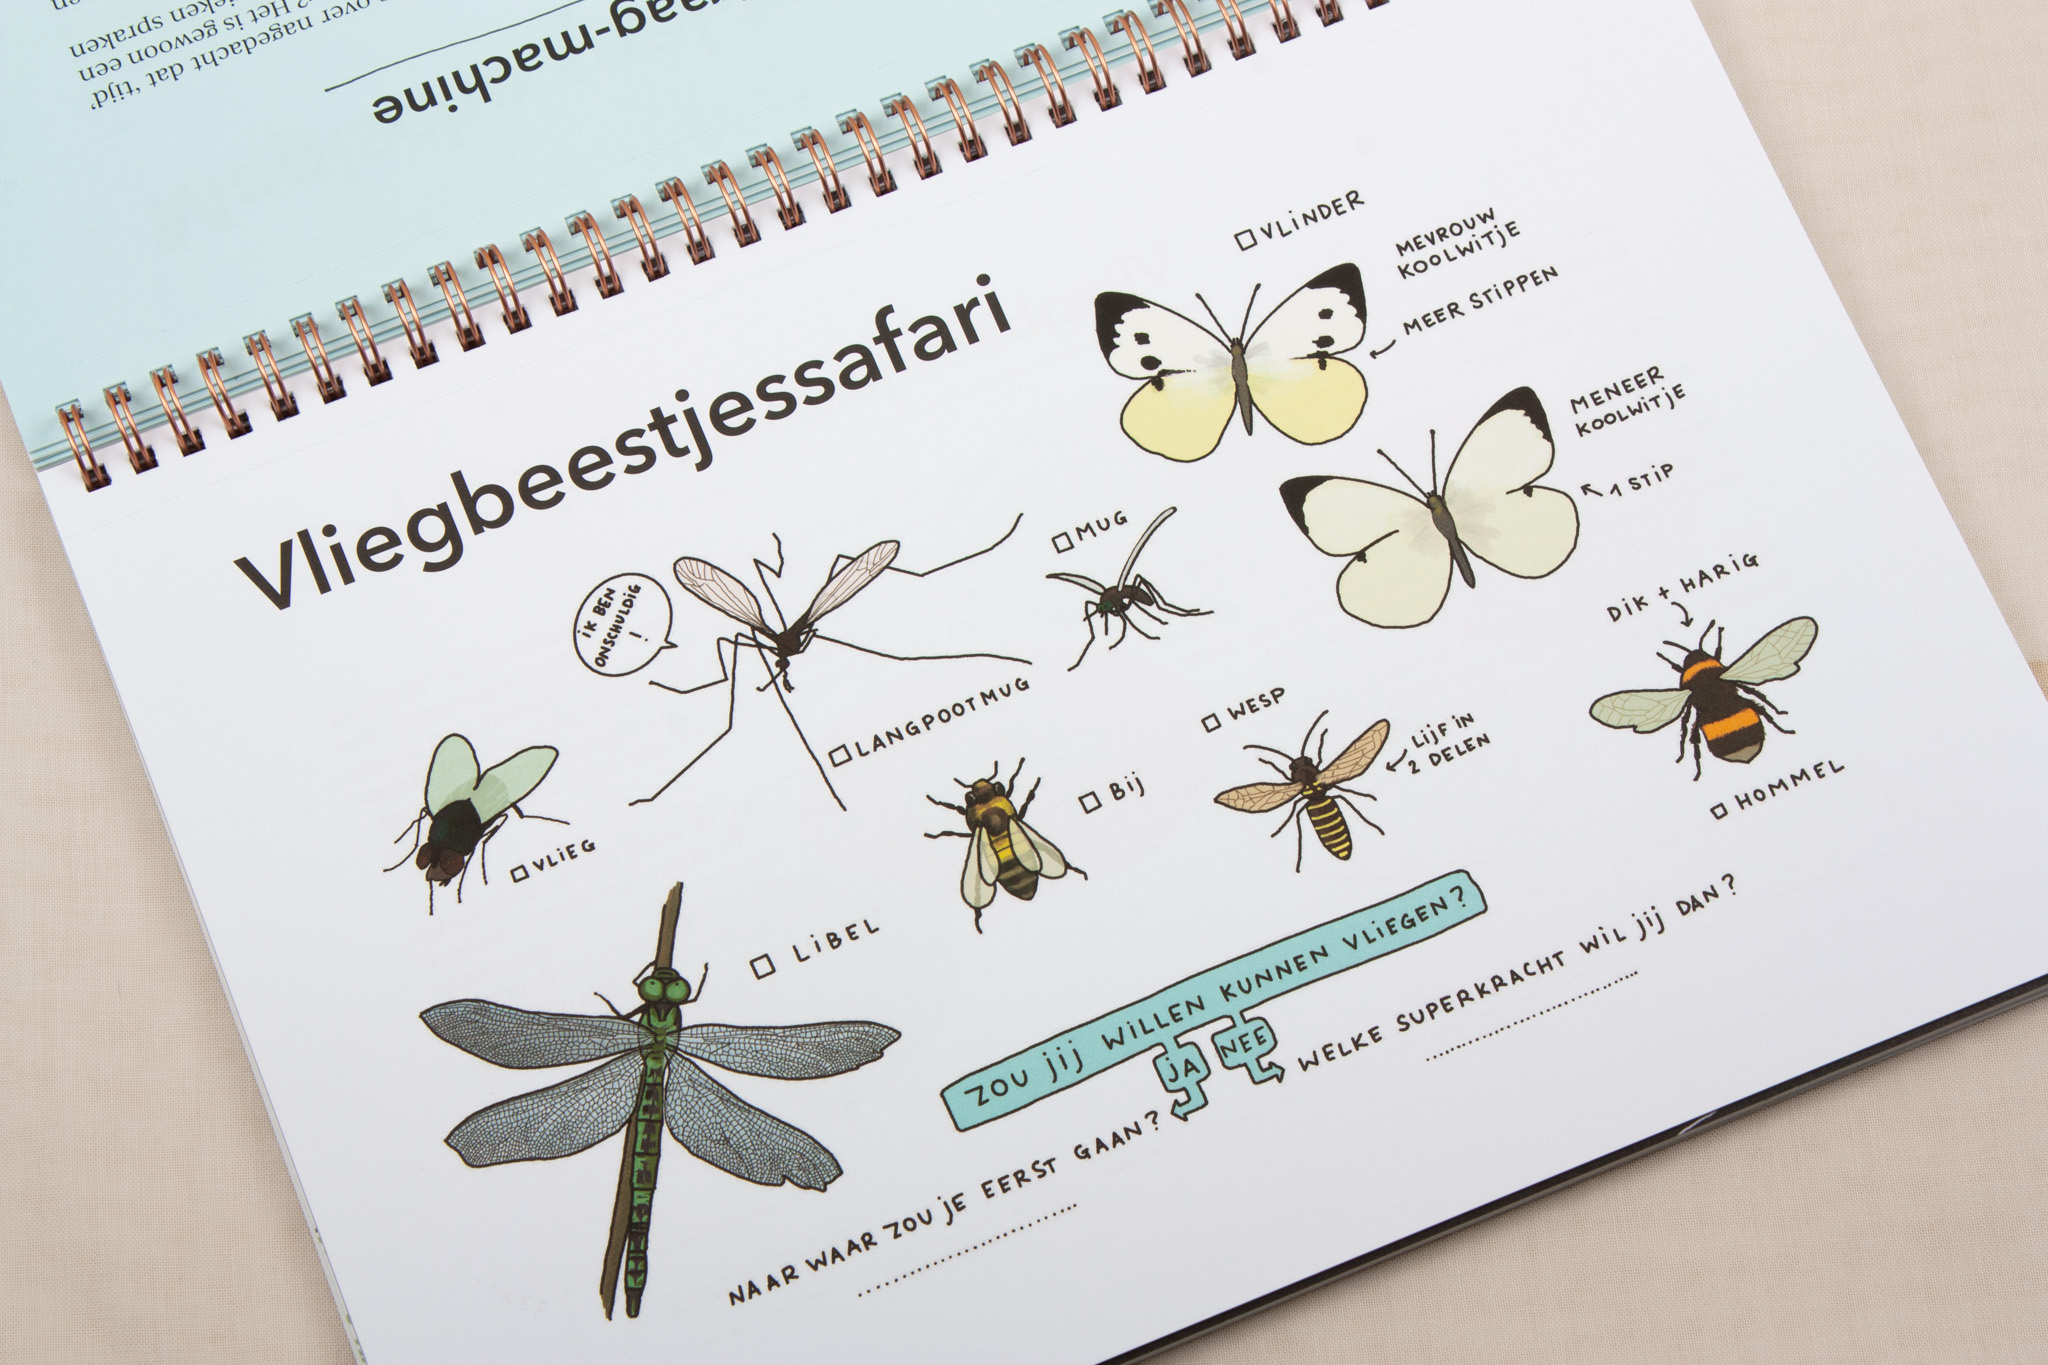 over nagedacht dat 'tijd'
? Het is gewoon een
eken spraken
aag-machine
Vliegbeestjessafari
VLINDER
MEVROUW
KOOLWITJE
MEER STIPPEN
MENEER
KOOLWITJE
1 STIP
MUG
IK BEN
ONSCHULDIG
!
LANGPOOTMUG
DIK + HARIG
HOMMEL
WESP
LIJF IN
2 DELEN
BIJ
VLIEG
LIBEL
ZOU JIJ WILLEN KUNNEN VLIEGEN?
JA
NEE
WELKE SUPERKRACHT WIL JIJ DAN?
NAAR WAAR ZOU JE EERST GAAN?